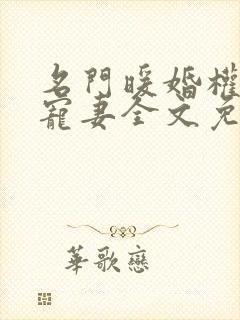 名門暖婚權
寵妻全文免
華歌戀